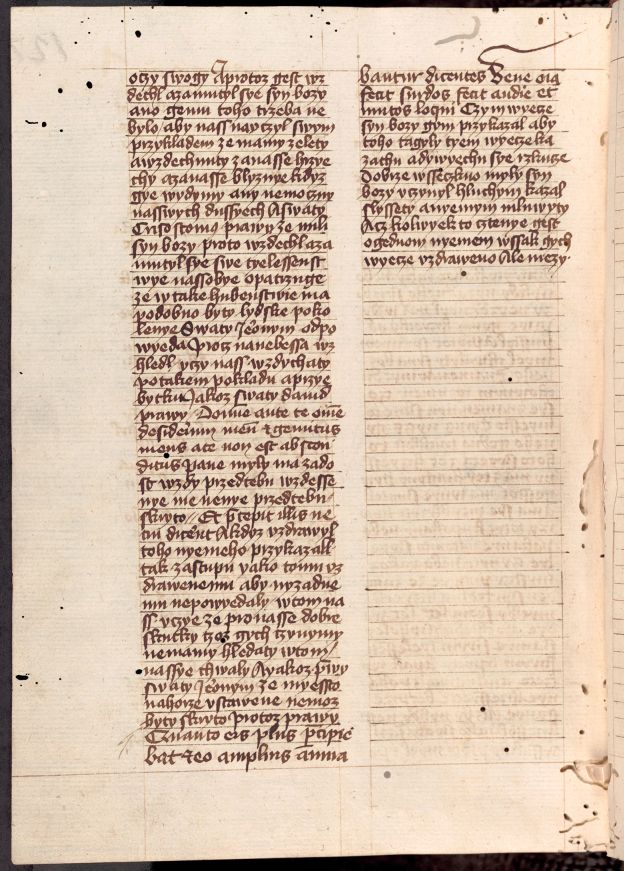 oczy swogy Aprotoz gest wz
dechl azamutyl sye syn bozy
ano gemu toho trzeba ne
bylo aby nass nauczyl swym
przykladem ze mamy zeleti
awzdechnuty zanasse hrzye
chy azanasse blyznye kdyz
gye wydymy any nemoczny
nasswych dussyech Aswaty
Crisostomus prawy ze mili
syn bozy proto wzdechl aza
mutyl sye swe tyelessenst
wye nassobye opatruge
ze w take hubenstwie ma
podobno byty lydske poko
lenye Swaty Jeronym odpo
wyeda Procz nanebessa wz
hledl uczy nass wzdychaty
potakem pokladu aprzye
bytku Jakoz swaty dauid
prawy Domine ante te omne
desiderium meum et gemitus
meus a te non est abscon
ditus pane myly ma zado
st wzdy przedtebu wzdesse
nye me nenye przedtebu
skryto Et precepit illis ne
cui dicerent Akdoz uzdrawyl
toho nyemeho przykazal
tak zastupu yako tomu uz
drawenemu aby nyzadne
mu nepowyedaly w tom na
ss uczye ze pronasse dobre
skutky tzoz gych czynymy
nemamy hledaty wtom
nassye chwaly Ayakoz prawy
swaty Jeronym ze myesto
nahorze ustawene nemoz
byty skryto Protoz prawy
Quanto eis plus precipie
bat tanto amplius anima
bantur dicentes Bene omnia
fecit surdos fecit audire et
mutos loqui Czym wyecze
syn bozy gym przykazal aby
toho tagyly tyem wyecze ka
zachu adywyechu sye rzkucze
Dobrze wsseczkno myly syn
bozy uczynyl hluchym kazal
slyssety anyemym mluwyty
Acz kolywyek to cztenye gest
ogednom nyemem wssak gych
wyecze uzdraweno Ale mezy